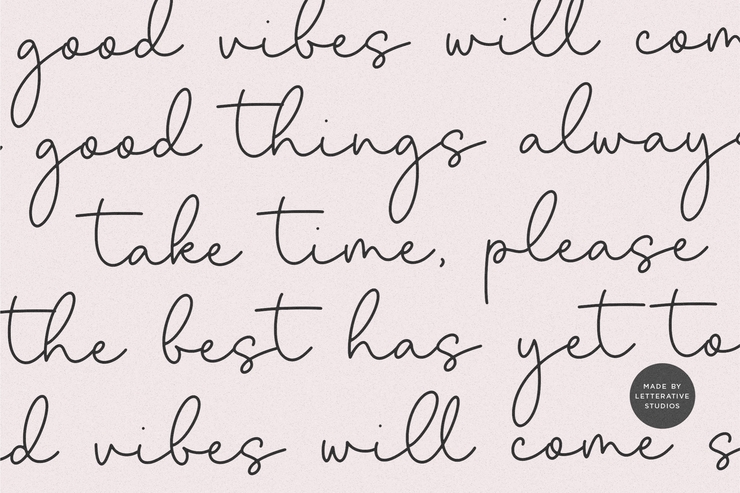 good vibes will com
good things always
take time, please
the best has yet to
d vibes will come s
MADE BY
LETTERATIVE
STUDIOS